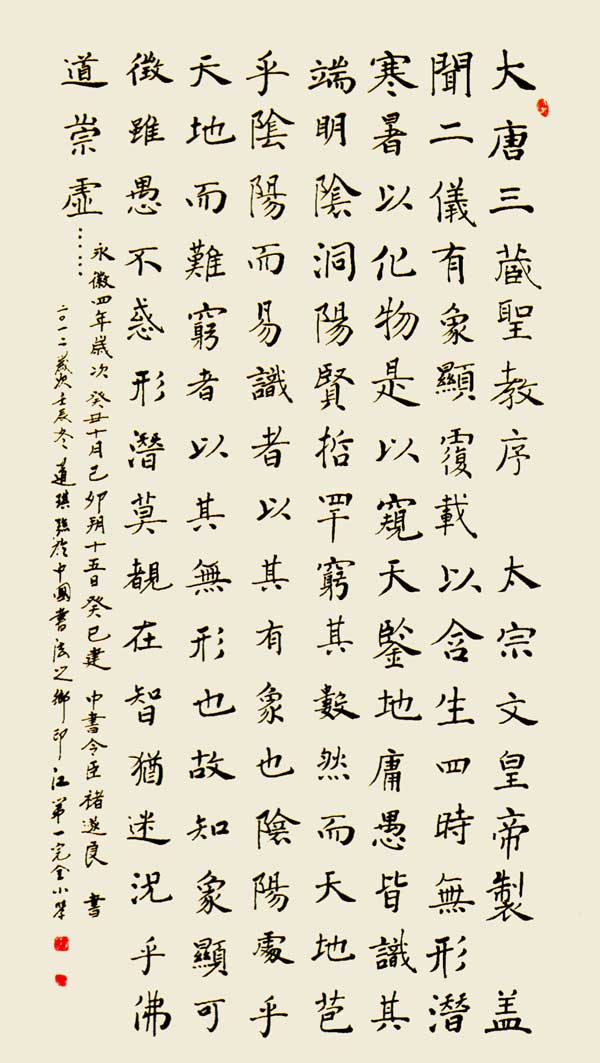 大唐三蔵聖教序 太宗文皇帝製 盖
聞二儀有象顯覆載以含生四時無形潛
寒暑以化物是以窺天鑒地庸愚皆識其
端明陰洞陽賢哲罕窮其數然而天地苞
乎陰陽而易識者以其有象也陰陽處乎
天地而難窮者以其無形也故知象顯可
徵雖愚不惑形潛莫覩在智猶迷況乎佛
道崇虛……
永徽四年歲次癸丑十月己卯朔十五日癸巳建 中書令臣褚遂良 書
二〇一二歲次壬辰冬 琪臨於中國書法之鄉印江第一完全小學